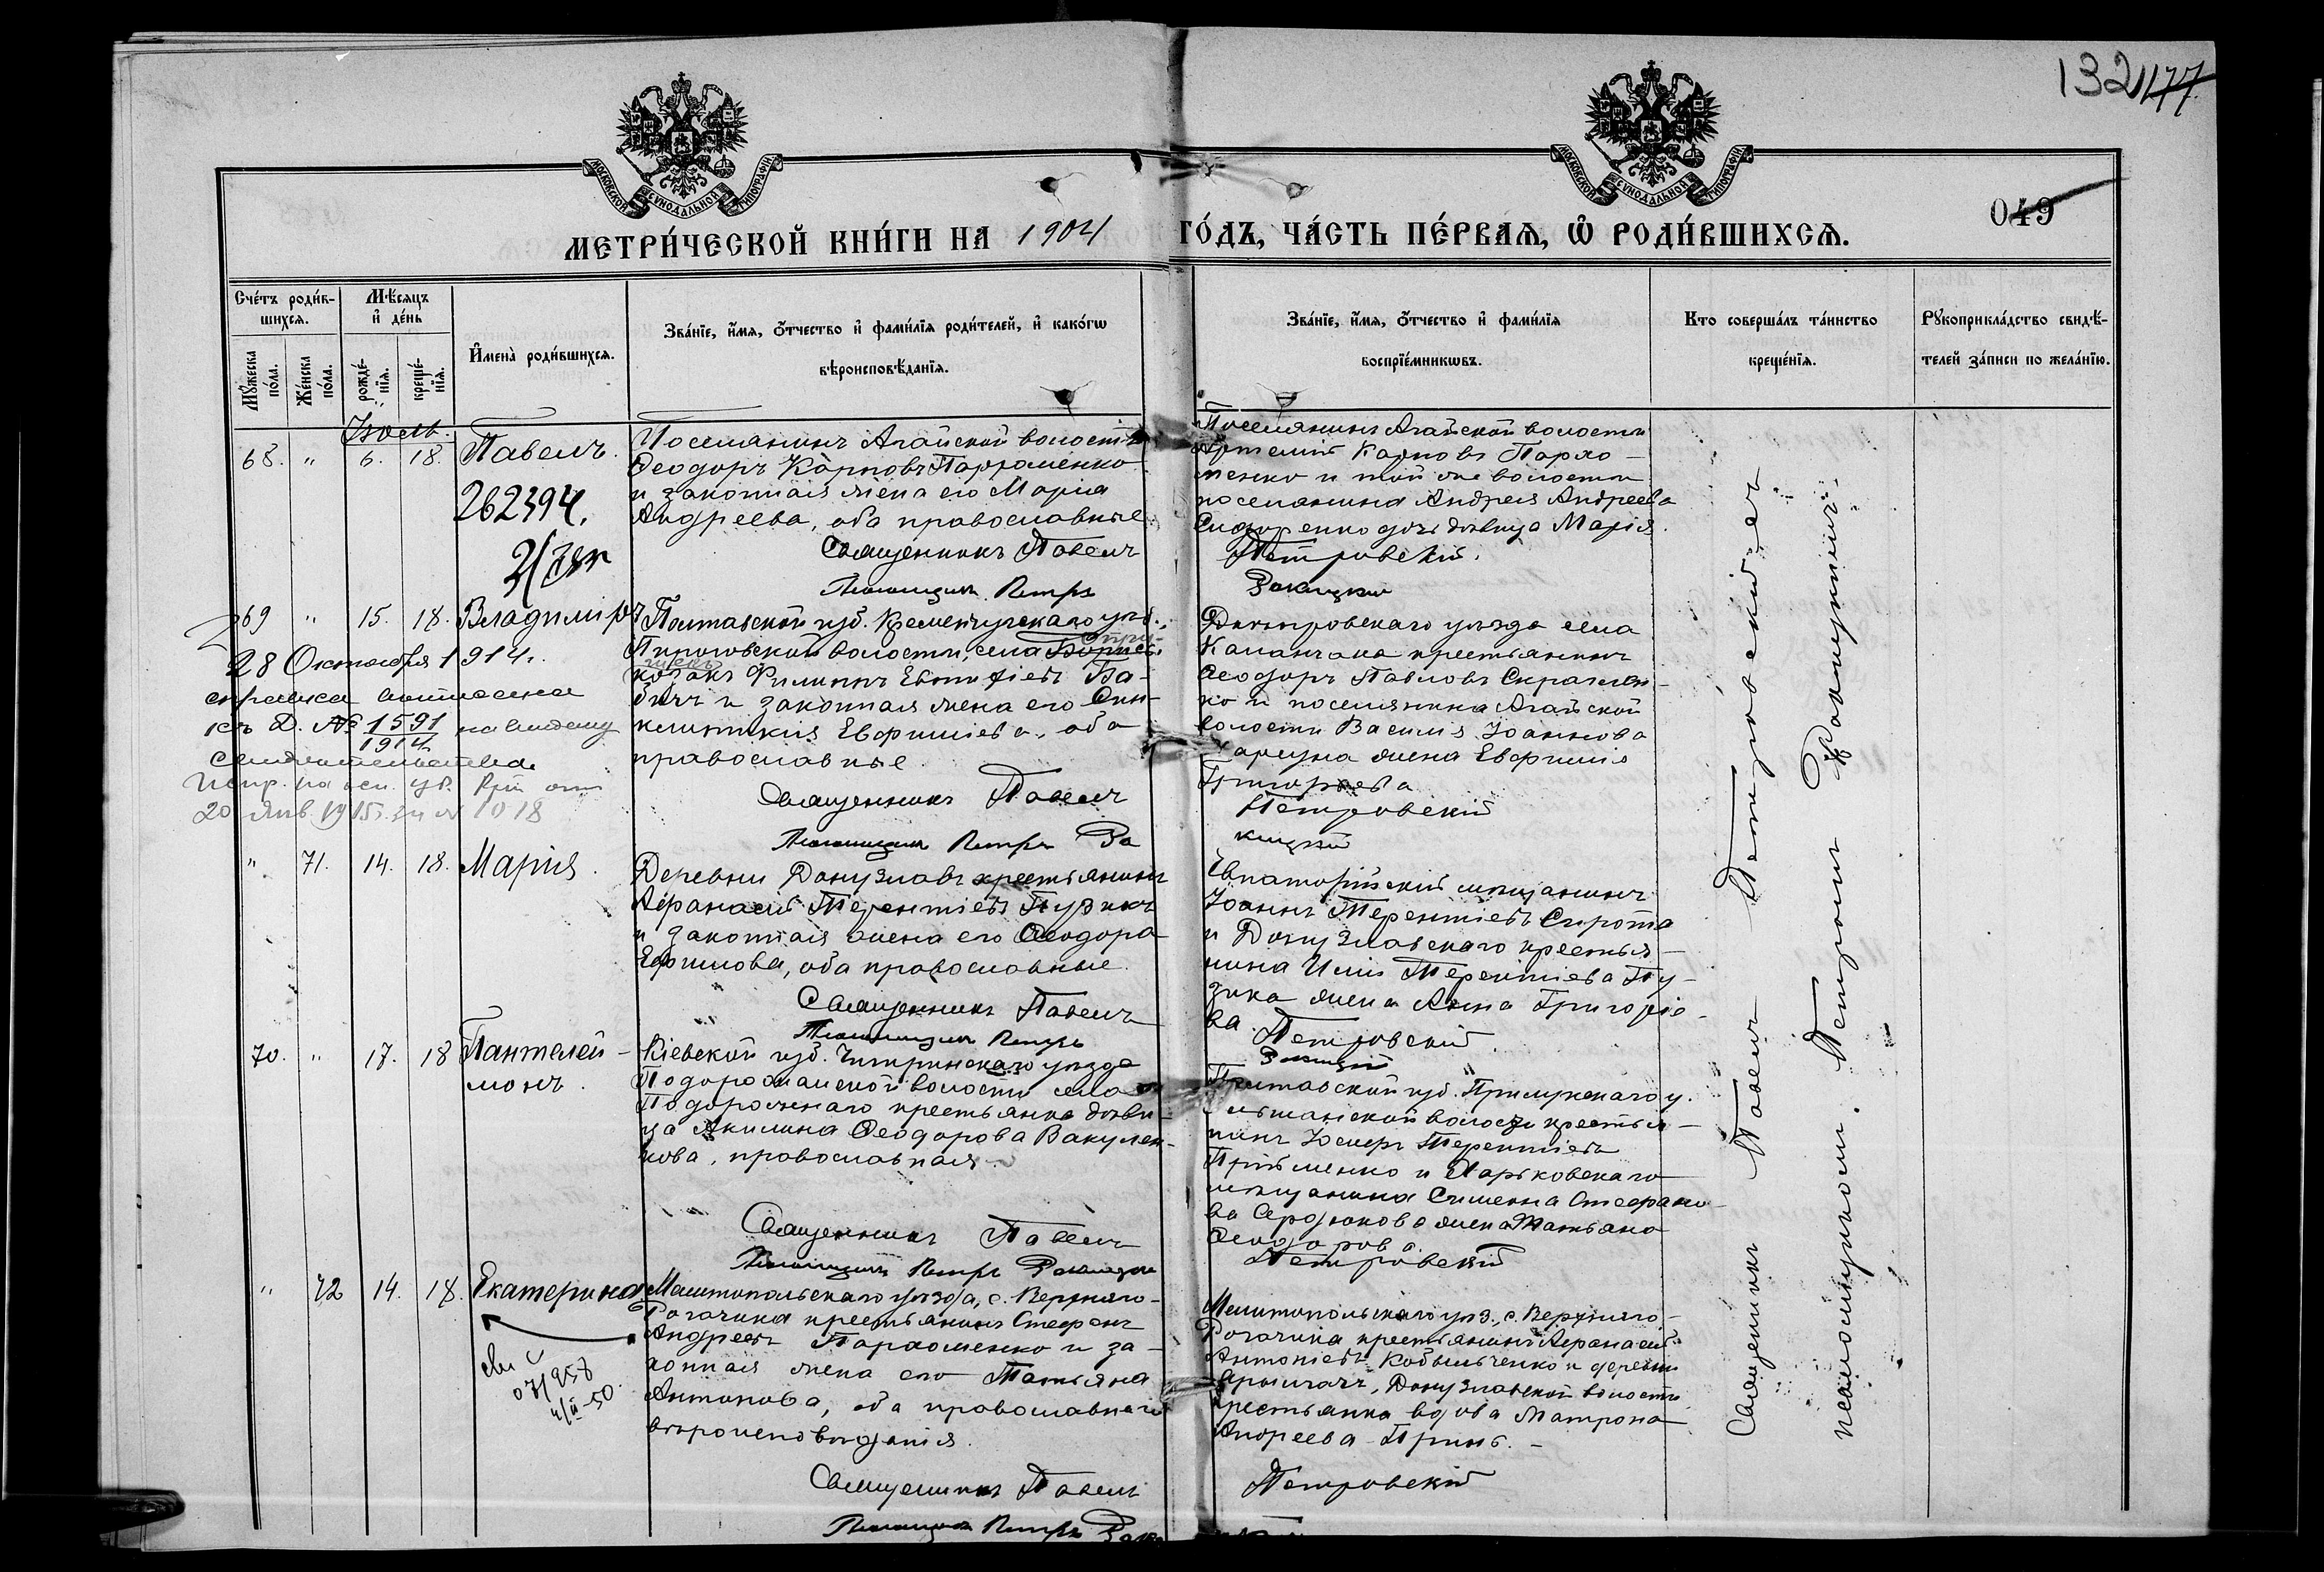 132 177
МОСКОВСКОЙ СѴНОДАЛЬНОЙ ТИПОГРАФІИ
МОСКОВСКОЙ СѴНОДАЛЬНОЙ ТИПОГРАФІИ
049
МЕТРИ́ЧЕСКОЙ КНИ́ГИ НА 1904 ГО́ДЪ, ЧА́СТЬ ПЕ́РВАѦ, Ѡ҆ РОДИ́ВШИХСѦ.
Сче́тъ роди́в-
шихсѧ.
Мꙋ́жеска по́ла.
Же́нска по́ла.
Мѣ́сѧцъ
и҆ де́нь
рожде́-
нїѧ.
креще́-
нїѧ.
И҆мена̀ роди́вшихсѧ.
Зва́нїе, и҆́мѧ, ѻ҆́тчество и҆ фами́лїѧ роди́телей, и҆ како́гѡ
вѣроисповѣ́данїѧ.
Зва́нїе, и҆́мѧ, ѻ҆́тчество и҆ фами́лїѧ
воспрїе́мникѡвъ.
Кто соверша́лъ та́инство
креще́нїѧ.
Рꙋкоприкла́дство свидѣ́-
телей за́писи по жела́нїю.
Июль.
68. " 6. 18. Павелъ.
262394.
Поселянинъ Агайской волости
Ѳеодоръ Карповъ Пархоменко
и законная жена его Марія
Андреева, оба православные.
Священникъ Павелъ
Псаломщикъ Петръ
Поселянинъ Агайской волости
Артемій Карповъ Пархо-
менко и той же волости
поселянина Андрея Андреева
Сидоренко дочь девица Марія.
Петровскій.
69 " 15. 18. Владиміръ
28 Октября 1914 г.
справка
къ Д. № 1591
1914
на выдачу
свидетельства
20 Янв. 1915 г. за № 1018
Полтавской губ. Кременчугскаго уез.,
волости, села
козакъ Филиппъ Евтихіевъ Ба-
бичъ и законная жена его Син-
клитикія Евфиміева, оба
православные.
Священникъ Павелъ
Псаломщикъ Петръ
Днепровскаго уезда села
Каланчака крестьянинъ
Ѳеодоръ Павловъ
ко и поселянина Агайской
волости Василія Іоаннова
жена Евфимія
Григорьева
Петровскій
" 71. 14. 18. Марія.
Деревни Донузлавъ крестьянинъ
Аѳанасій Терентіевъ Пузикъ
и законная жена его Ѳеодора
Ефимова, оба православные.
Священникъ Павелъ
Псаломщикъ Петръ
Евпаторійскій мещанинъ
Іоаннъ Терентіевъ Сирота
и Донузлавскаго крестья-
нина Иліи Терентіева Пу-
зика жена Анна Григоріе-
ва.
Петровскій.
70. " 17. 18 Пантелей-
монъ.
Кіевской губ. Чигринскаго уезда
Подорожанской волости села
Подорожнаго крестьянка деви-
ца Акилина Ѳеодорова Вакулен-
кова, православная.
Священникъ Павелъ
Псаломщикъ Петръ
Полтавской губ. Прилукскаго у.
волости крестья-
нинъ Іосифъ Терентіевъ
и Харьковскаго
мещанина Симеона Стефано-
ва Сердюкова жена Татьяна
Ѳеодорова.
Петровскій
" 72 14. 18. Екатерина.
4/II-50
Мелитопольскаго уезда, с. Верхняго-
Рогачика крестьянинъ Стефанъ
Андреевъ Пархоменко и за-
конная жена его Татьяна
Антонова, оба православнаго
вероисповеданія.
Священникъ Павелъ
Псаломщикъ Петръ
Мелитопольскаго уез., с. Верхняго-
Рогачика крестьянинъ Аѳанасій
Антоніевъ Кобыльченко и деревни
Донузлавской волости,
крестьянка вдова Матрона
Андреева
Петровскій
Священникъ Павелъ Петровскій съ
псаломщикомъ Петромъ